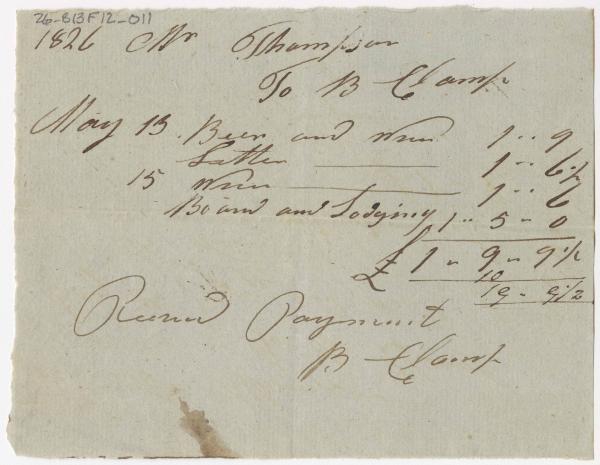 26-B13F12-011
1826 Mr Thompson
To B Clamp
May 13 Beer and Wine 1 " 9
Letter 1 " 6 1/2
15 Wine 1 " 6
Board and Lodging 1 " 5 " 0
£ 1 " 9 " 9 1/2
10
19 " 9 1/2
Received Payment
B Clamp